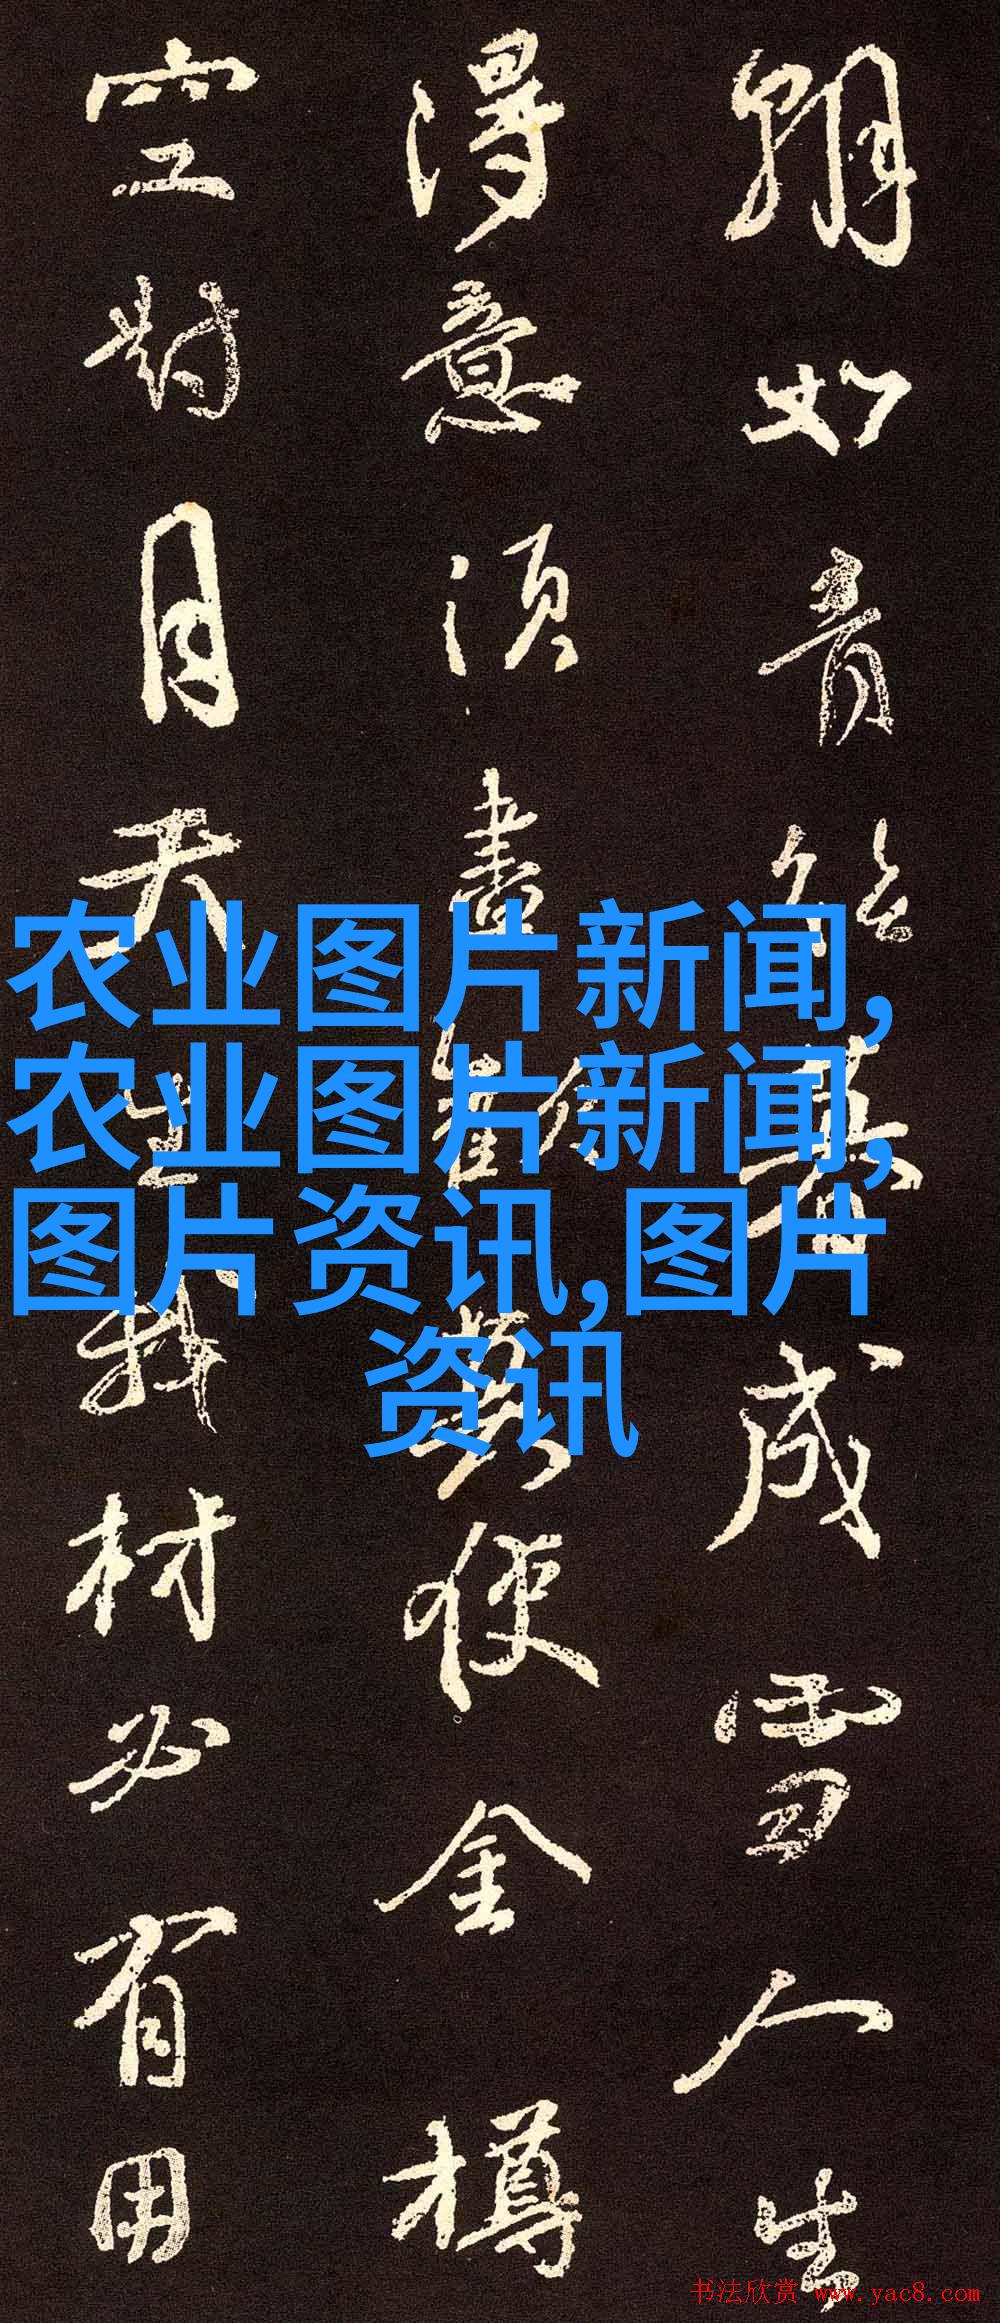 朝如青絲暮成雪人生
得意須盡歡莫使金樽
空對月天生我材必有用
农业图片新闻,
农业图片新闻,
图片资讯,图片
资讯
书法欣赏 www.yac8.com